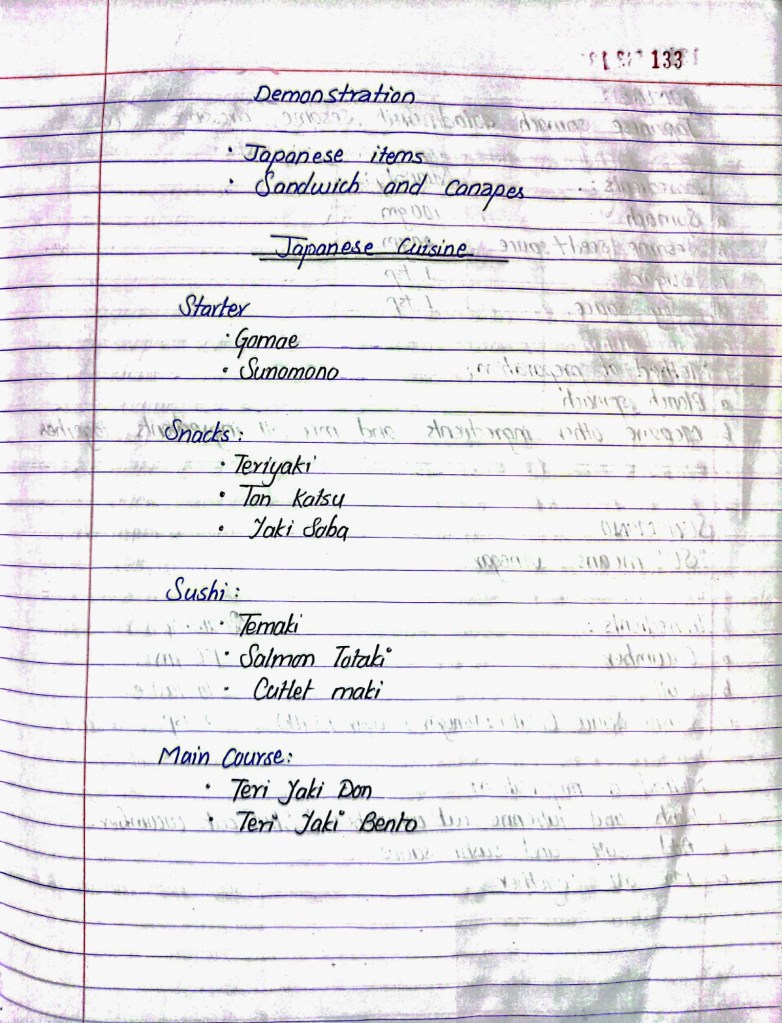 133
Demonstration
• Japanese items
• Sandwich and Canapes
Japanese Cuisine
Starter
• Gomae
• Sunomono
Snacks:
• Teriyaki
• Ton Katsu
• Yaki Soba
Sushi:
• Temaki
• Salmon Tataki
• Cutlet maki
Main Course:
• Teri Yaki Don
• Teri Yaki Bento